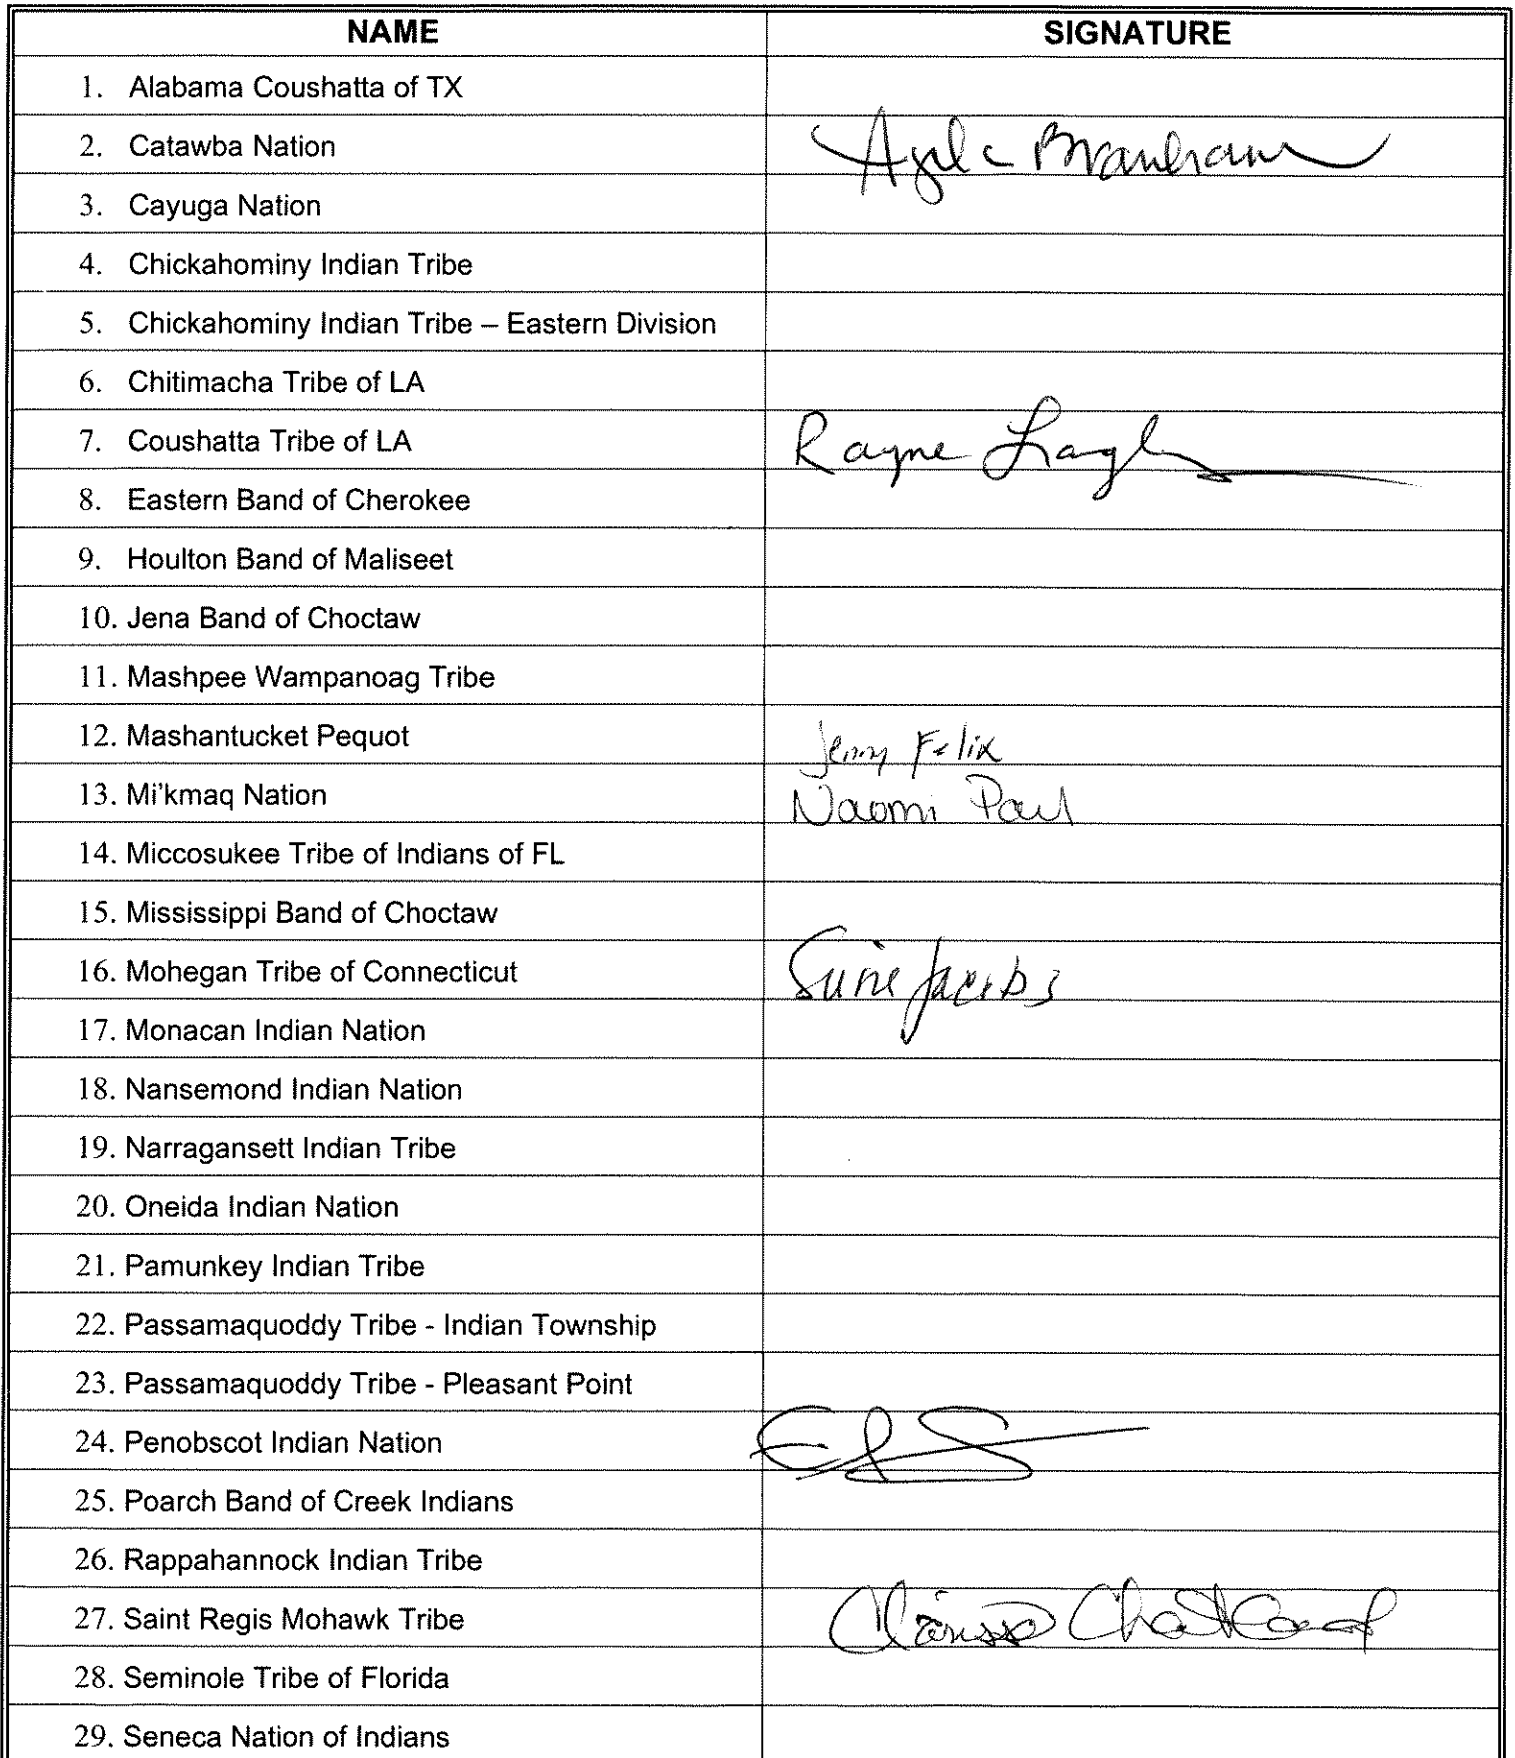 NAME SIGNATURE
1. Alabama Coushatta of TX
2. Catawba Nation Branham
3. Cayuga Nation
4. Chickahominy Indian Tribe
5. Chickahominy Indian Tribe – Eastern Division
6. Chitimacha Tribe of LA
7. Coushatta Tribe of LA Rayne
8. Eastern Band of Cherokee
9. Houlton Band of Maliseet
10. Jena Band of Choctaw
11. Mashpee Wampanoag Tribe
12. Mashantucket Pequot Jenny Felix
13. Mi'kmaq Nation Naomi Paul
14. Miccosukee Tribe of Indians of FL
15. Mississippi Band of Choctaw
16. Mohegan Tribe of Connecticut Jacobs
17. Monacan Indian Nation
18. Nansemond Indian Nation
19. Narragansett Indian Tribe
20. Oneida Indian Nation
21. Pamunkey Indian Tribe
22. Passamaquoddy Tribe - Indian Township
23. Passamaquoddy Tribe - Pleasant Point
24. Penobscot Indian Nation
25. Poarch Band of Creek Indians
26. Rappahannock Indian Tribe
27. Saint Regis Mohawk Tribe Clarissa
28. Seminole Tribe of Florida
29. Seneca Nation of Indians